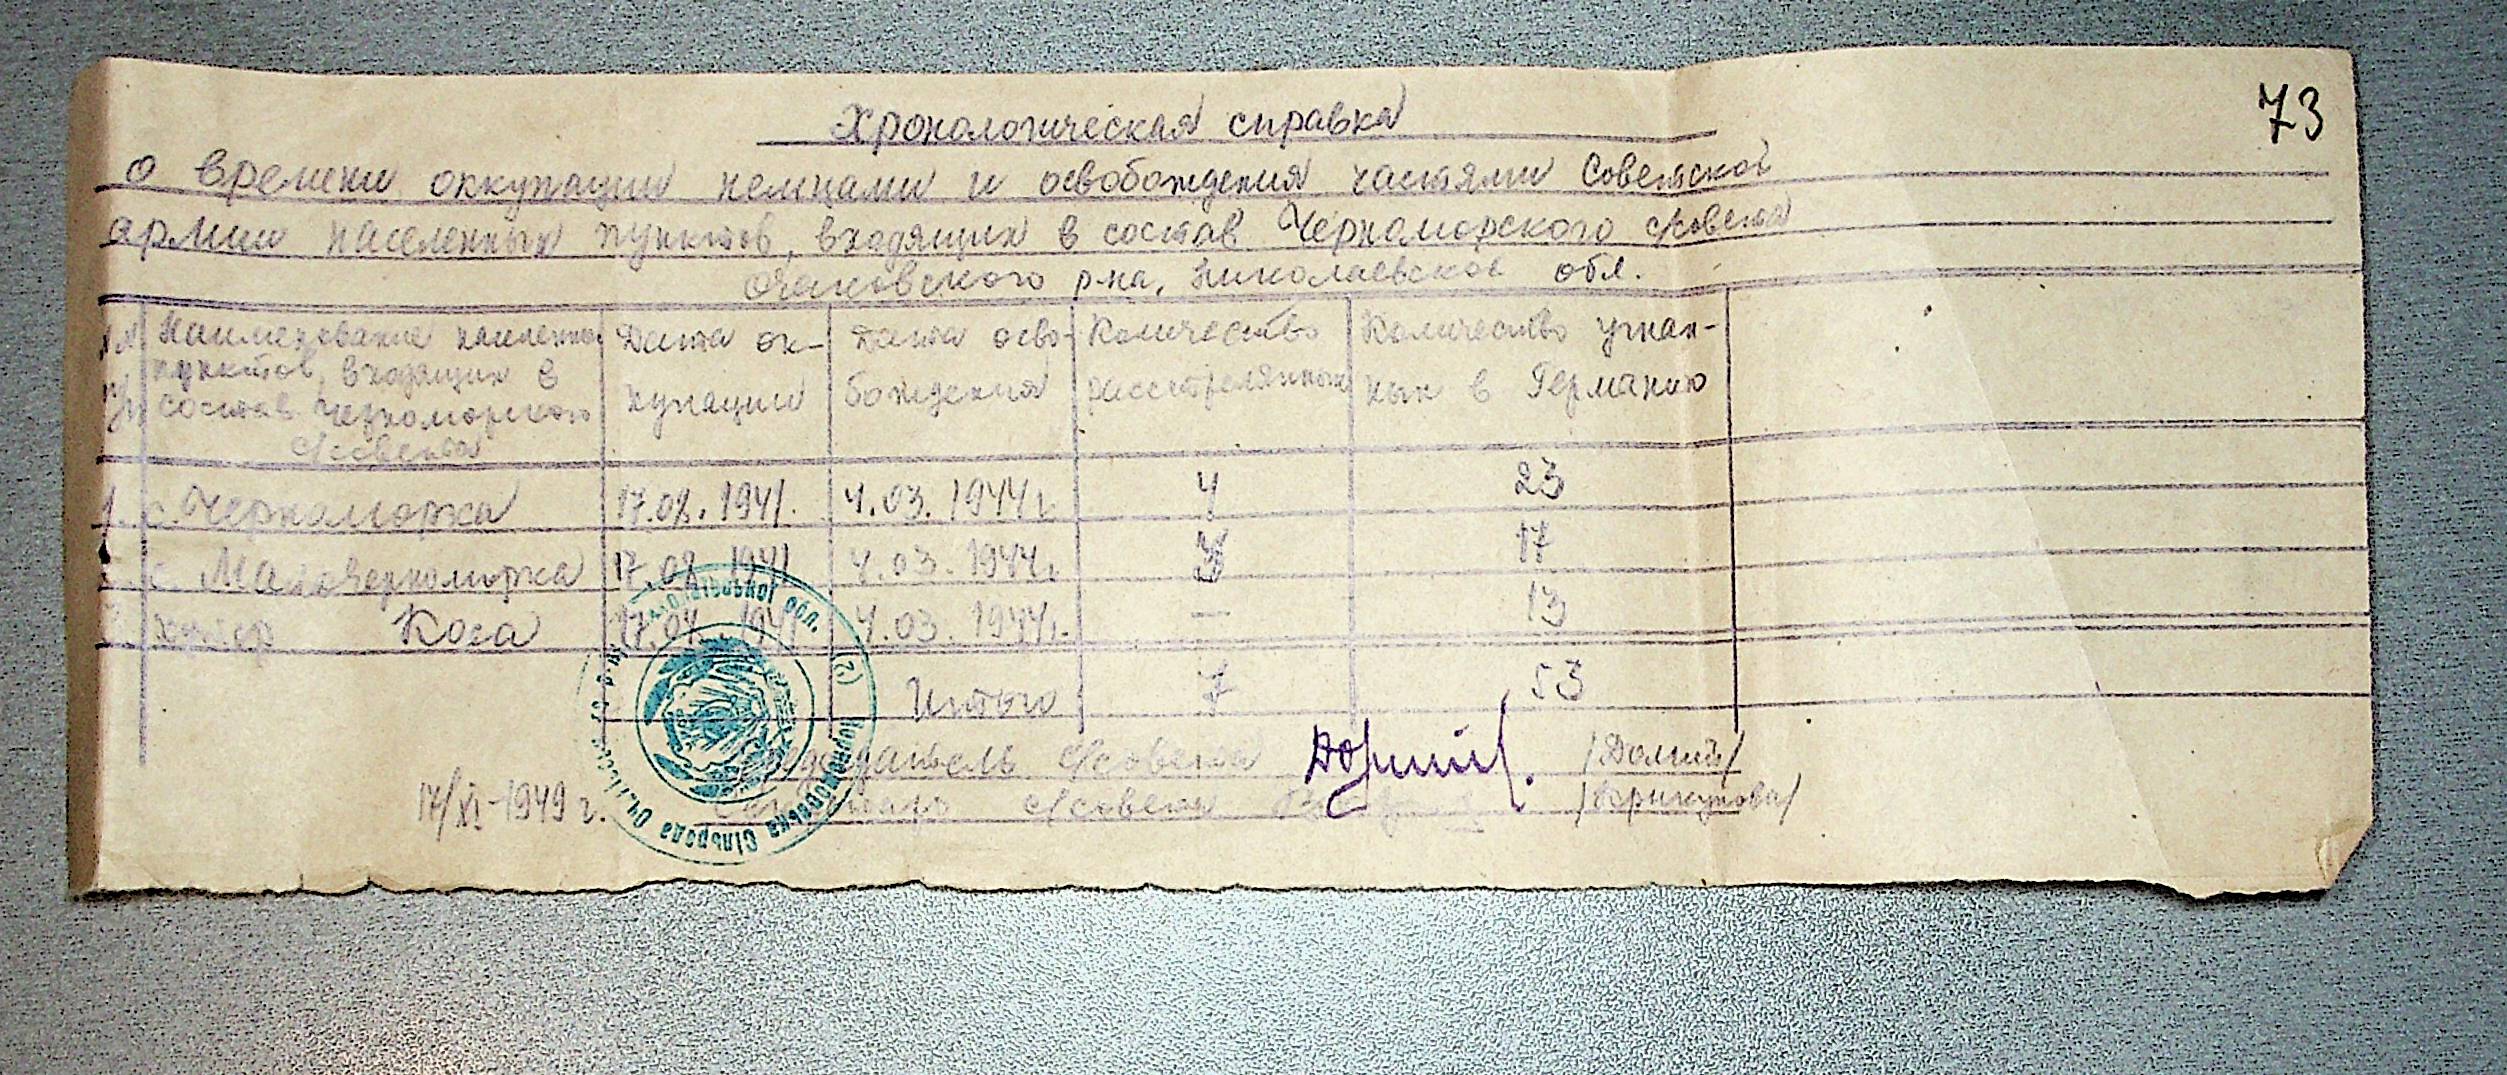 73
Хронологическая справка
о времени оккупации немцами и освобождения частями Советской
армии населенных пунктов, входящих в состав Черноморского с/совета
Очаковского р-на, Николаевской обл.
№№ п/п | Наименование населенны пунктов, входящих в состав Черноморского с/совета | Дата ок-купации | Дата осво-бождения | Количество расстрелянных | Количество угнан-ных в Германию
1. с. Черноморка 17.08.1941. 4.03.1944г. 4 23
2. с. Малочерноморка 17.08.1941 4.03.1944г. 3 17
3. хутор Коса 17.08.1941 4.03.1944г. — 13
Итого 7 53
Председатель с/совета /Долгий/
17/XI-1949 г. Секретарь с/совета /Крикунова/
Чорноморська Сільрада обл.